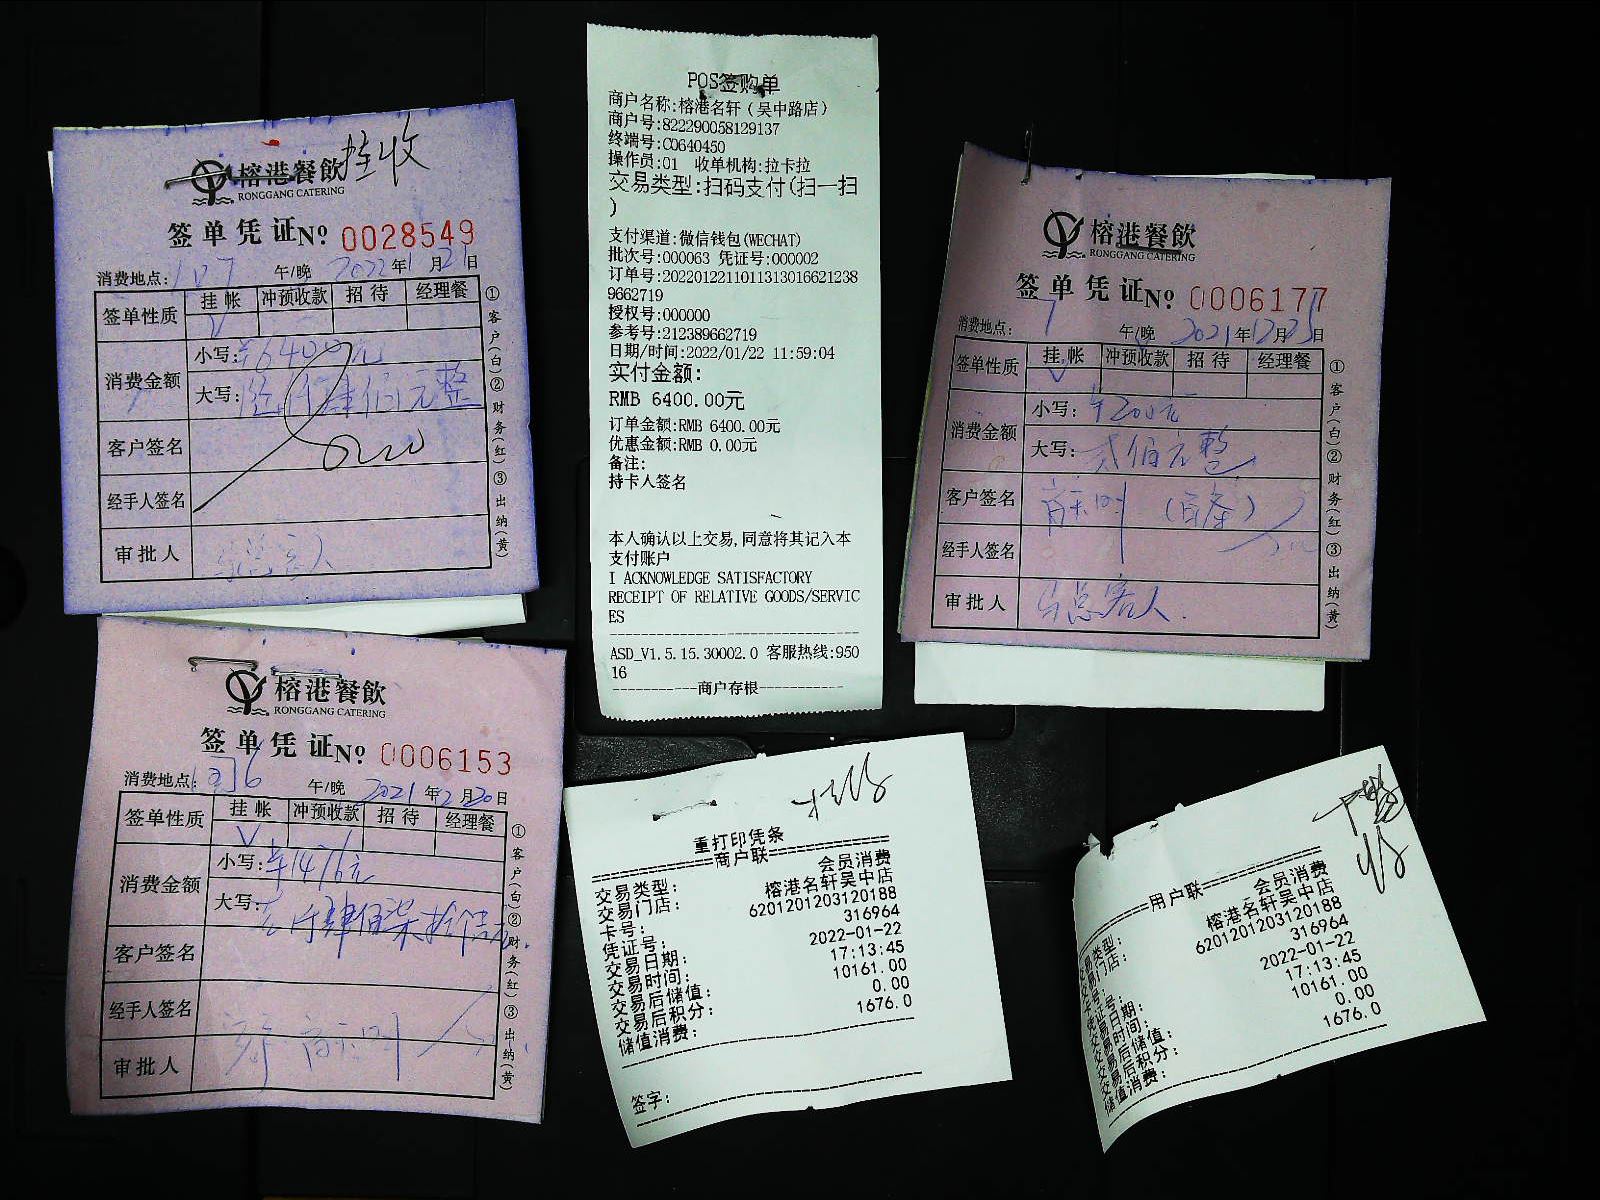 挂收
榕港餐飲
RONGGANG CATERING
签单凭证№ 0028549
消费地点: 107 午/晚 2022年1月21日
签单性质 挂帐 冲预收款 招待 经理餐
消费金额 小写:¥6400元
大写:陆仟肆佰元整
客户签名
经手人签名
审批人
①客户(白)②财务(红)③出纳(黄)
POS签购单
商户名称:榕港名轩(吴中路店)
商户号:822290058129137
终端号:C0640450
操作员:01 收单机构:拉卡拉
交易类型:扫码支付(扫一扫
)
支付渠道:微信钱包(WECHAT)
批次号:000063 凭证号:000002
订单号:2022012211011313016621238
9662719
授权号:000000
参考号:212389662719
日期/时间:2022/01/22 11:59:04
实付金额:
RMB 6400.00元
订单金额:RMB 6400.00元
优惠金额:RMB 0.00元
备注:
持卡人签名
本人确认以上交易,同意将其记入本
支付账户
I ACKNOWLEDGE SATISFACTORY
RECEIPT OF RELATIVE GOODS/SERVIC
ES
ASD_V1.5.15.30002.0 客服热线:950
16
-----------商户存根-----------
榕港餐飲
RONGGANG CATERING
签单凭证№ 0006177
消费地点: 7 午/晚 2021年12月25日
签单性质 挂帐 冲预收款 招待 经理餐
消费金额 小写:¥200元
大写:贰佰元整
客户签名
经手人签名
审批人 马总客人
①客户(白)②财务(红)③出纳(黄)
榕港餐飲
RONGGANG CATERING
签单凭证№ 0006153
消费地点: 午/晚 2021年12月20日
签单性质 挂帐 冲预收款 招待 经理餐
消费金额 小写:¥1476元
大写:壹仟肆佰柒拾陆元
客户签名
经手人签名
审批人
①客户(白)②财务(红)③出纳(黄)
重打印凭条
========商户联========
交易类型: 会员消费
交易门店: 榕港名轩吴中店
卡号: 6201201203120188
凭证号: 316964
交易日期: 2022-01-22
交易时间: 17:13:45
交易后储值: 10161.00
交易后积分: 0.00
储值消费: 1676.0
签字:
======用户联======
易类型: 会员消费
易门店: 榕港名轩吴中店
号: 6201201203120188
证号: 316964
交易日期: 2022-01-22
交易时间: 17:13:45
交易后储值: 10161.00
交易后积分: 0.00
储值消费: 1676.0